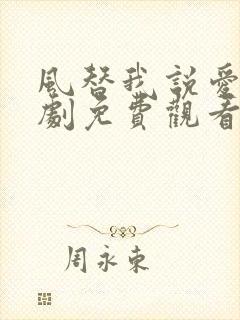 風替我說愛
劇免費觀看
周永東